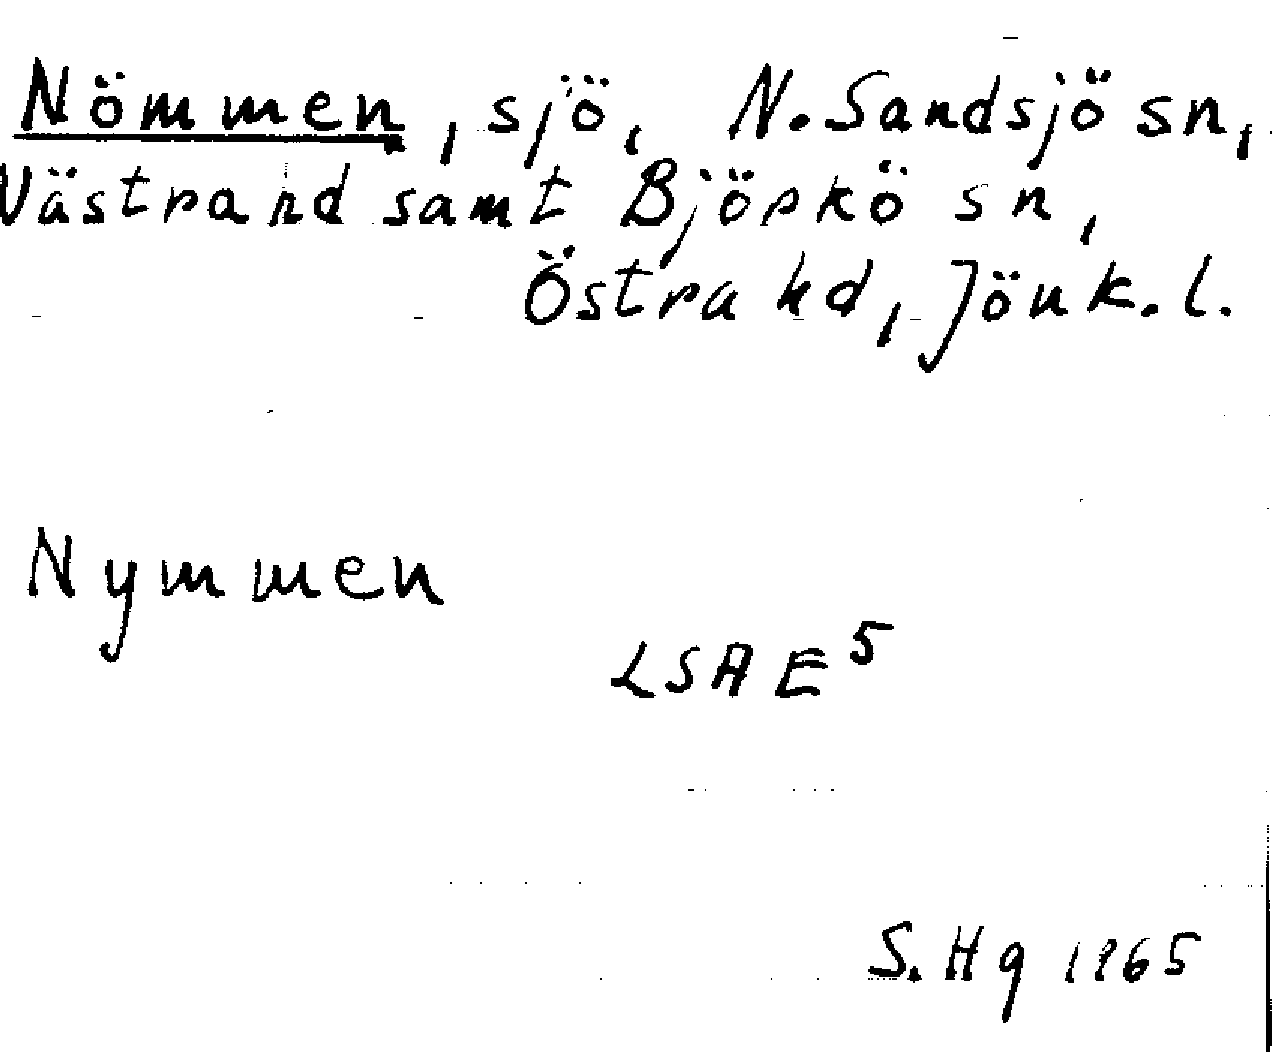 Nömmen, sjö, N. Sandsjö sn,
Västra hd samt Björkö sn,
Östra hd, Jönk. l.
Nymmen
LSA E⁵
S. Hg 1965